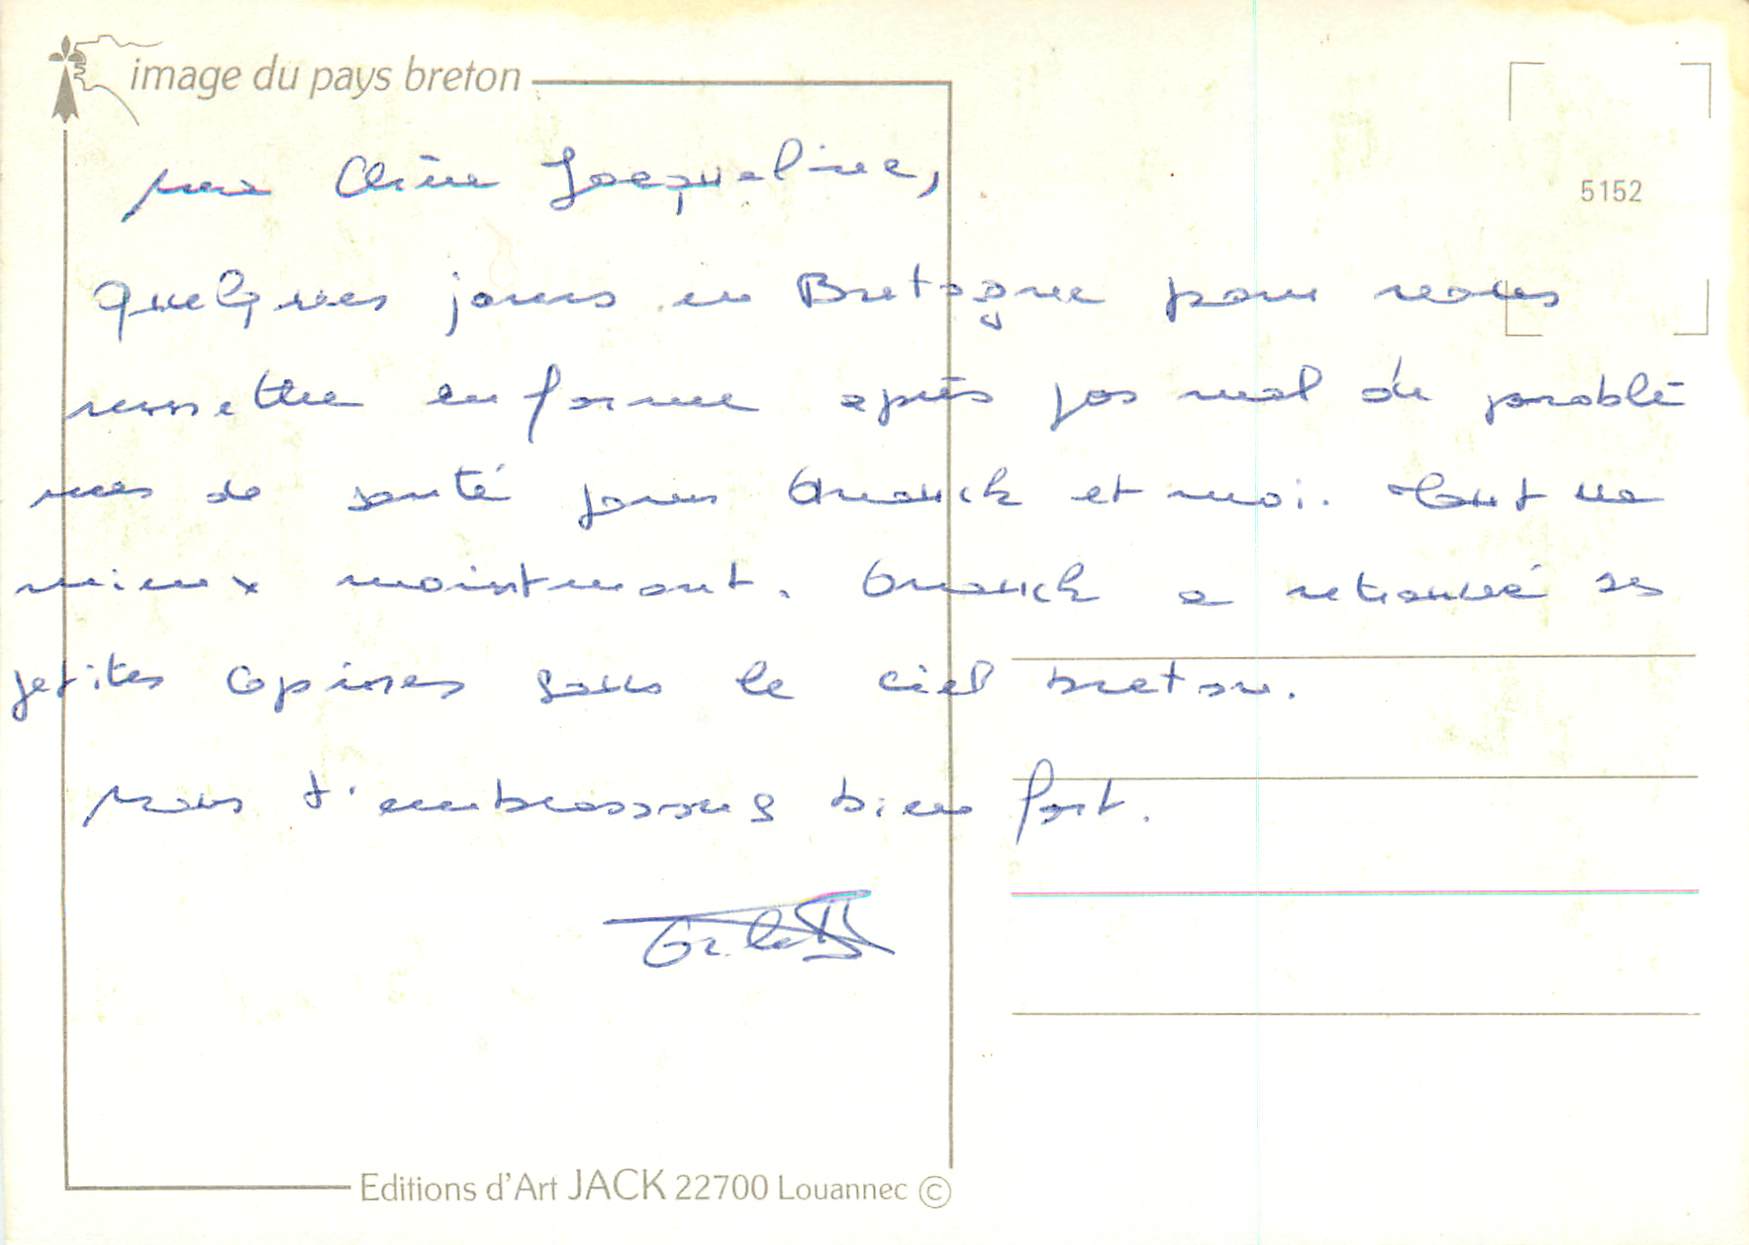 image du pays breton
5152
Ma Chère Jacqueline,
Quelques jours en Bretagne pour nous
remettre en forme après pas mal de problè
mes de santé pour Annick et moi. Tout va
mieux maintenant. Annick a retrouvé ses
petites copines sous le ciel breton.
Nous t'embrassons bien fort.
Editions d'Art JACK 22700 Louannec ©